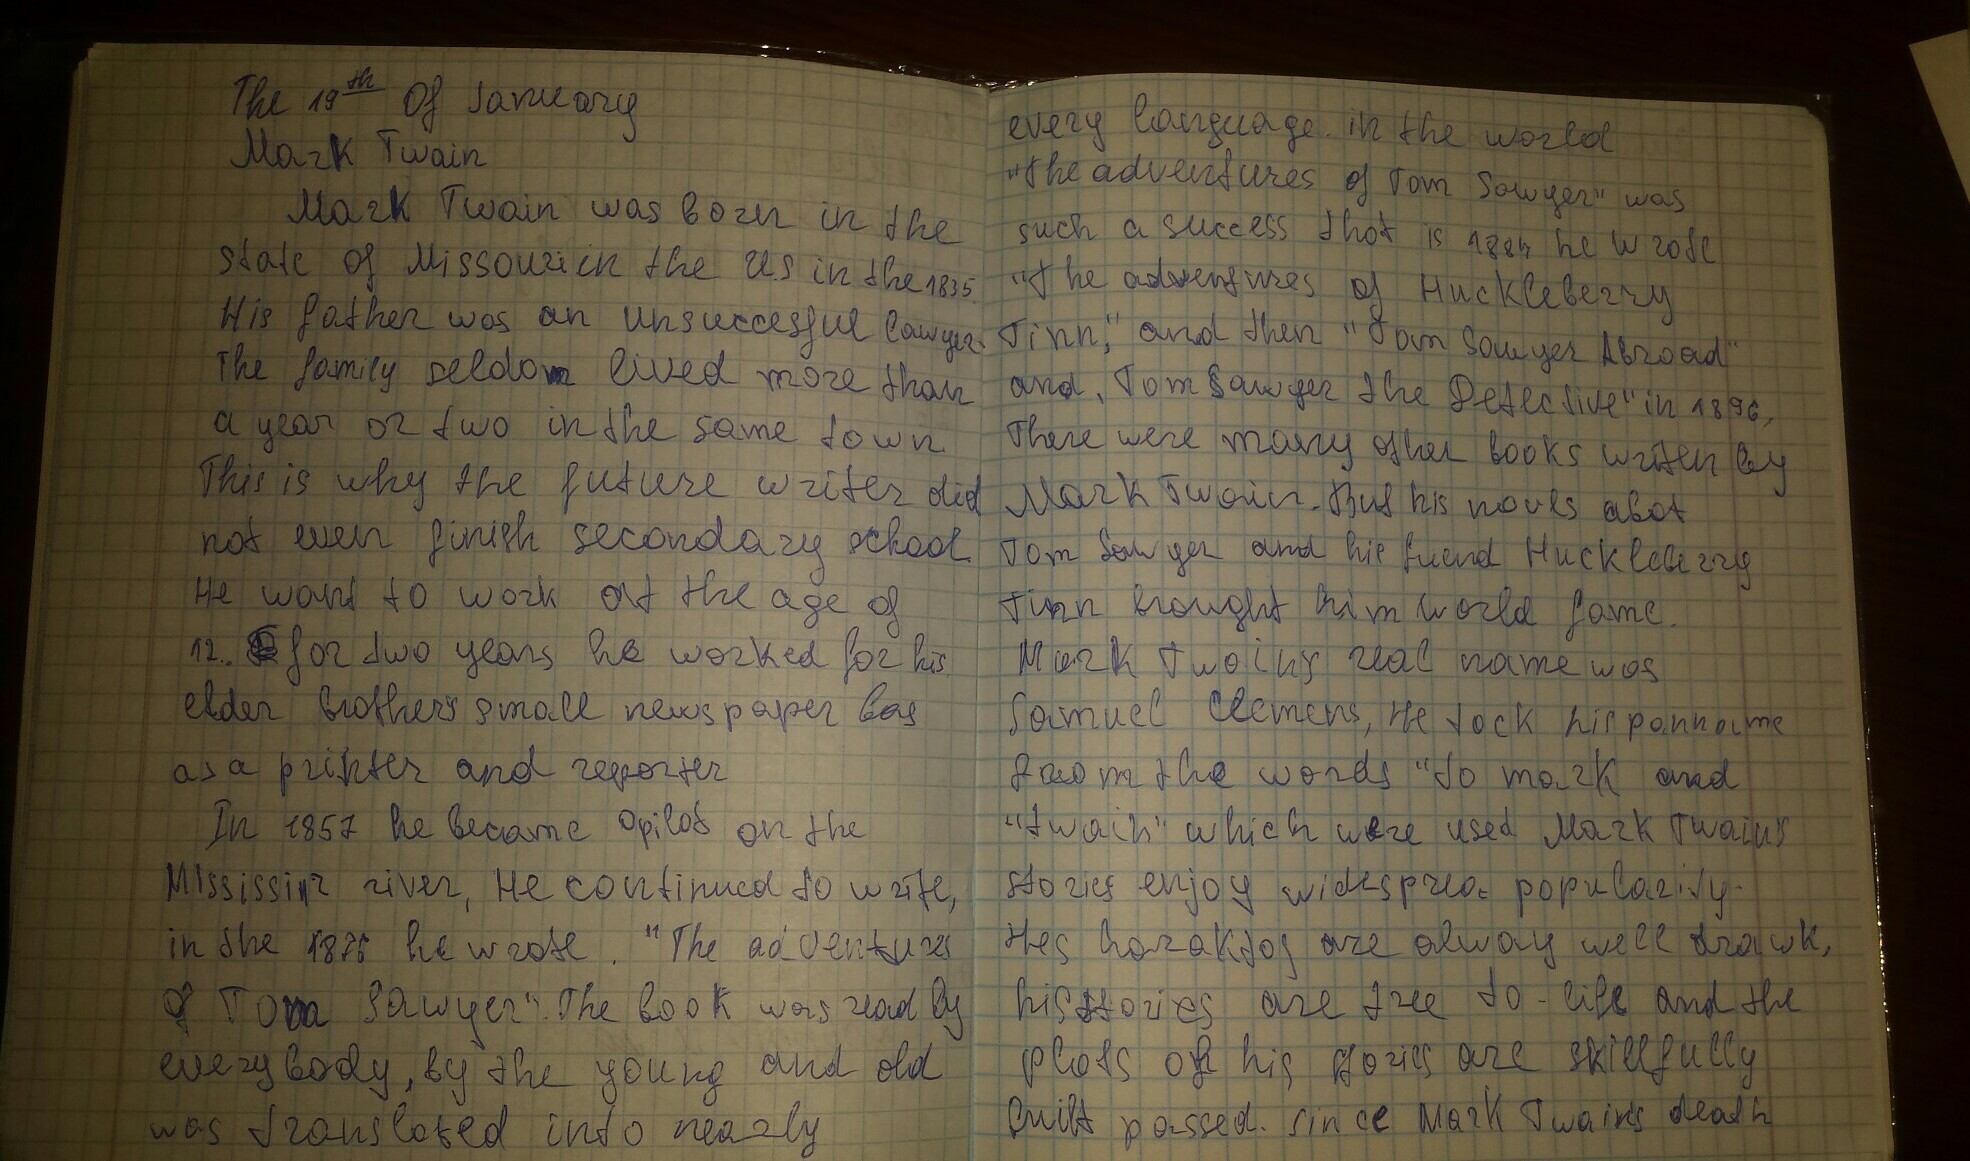 The 19th Of January
Mark Twain
Mark Twain was born in the
state of Missouri in the US in the 1835.
His father was an unsuccesful lawyer.
The family seldom lived more than
a year or two in the same town
This is why the future writer did
not even finish secondary school
He want to work at the age of
12.. for two years he worked for his
elder brother's small newspaper bas
as a printer and reporter
In 1857 he became a pilot on the
river, He continued to write,
in the 1876 he wrote. "The adventures
of Tom Sawyer". The book was read by
everybody, by the young and old
was translated into nearly
every language. in the world
"the adventures of Tom Sawyer" was
such a success that is 1884 he wrote
"the adventures of Huckleberry
Finn," and then "Tom Sawyer Abroad"
and, Tom Sawyer the Detective" in 1896,
There were many other books writen by
Mark Twain. But his novls abot
Tom Sawyer and his friend Huckleberry
Finn brought him world fame.
Mark Twain's real name was
Samuel Clemens, He tock his panname
from the words "to mark and
"twain" which were used Mark Twain's
stories enjoy widesprea popularity.
Hes haraktos are alway well drawk,
his stories are tree to-life and the
plots of his stories are skillfully
built passed. since Mark Twain's death